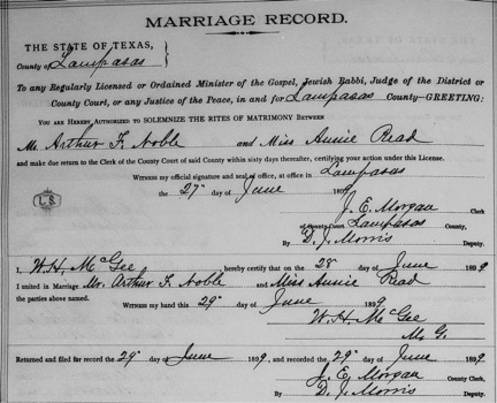 MARRIAGE RECORD.
THE STATE OF TEXAS,
County of Lampasas
To any Regularly Licensed or Ordained Minister of the Gospel, Jewish Rabbi, Judge of the District or
County Court, or any Justice of the Peace, in and for Lampasas County—GREETING:
YOU ARE HEREBY AUTHORIZED TO SOLEMNIZE THE RITES OF MATRIMONY BETWEEN
Mr. Arthur F. Noble and Miss Annie Read
and make due return to the Clerk of the County Court of said County within sixty days thereafter, certifying your action under this License.
WITNESS my official signature and seal of office, at office in Lampasas
the 27" day of June 1899
L.S.
J. E. Morgan Clerk
of County Court Lampasas County,
By D. J. Morris Deputy.
I, W. H. McGee hereby certify that on the 28 day of June 1899
I united in Marriage Mr. Arthur F. Noble and Miss Annie Read
the parties above named. WITNESS my hand this 29" day of June 1899
W. H. McGee
M. G.
Returned and filed for record the 29" day of June 1899, and recorded the 29" day of June 1899
J. E. Morgan County Clerk,
By D. J. Morris Deputy.